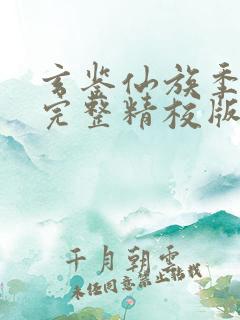 玄鉴仙族季
完整精校版
千月朝雲
未经同意禁止转载